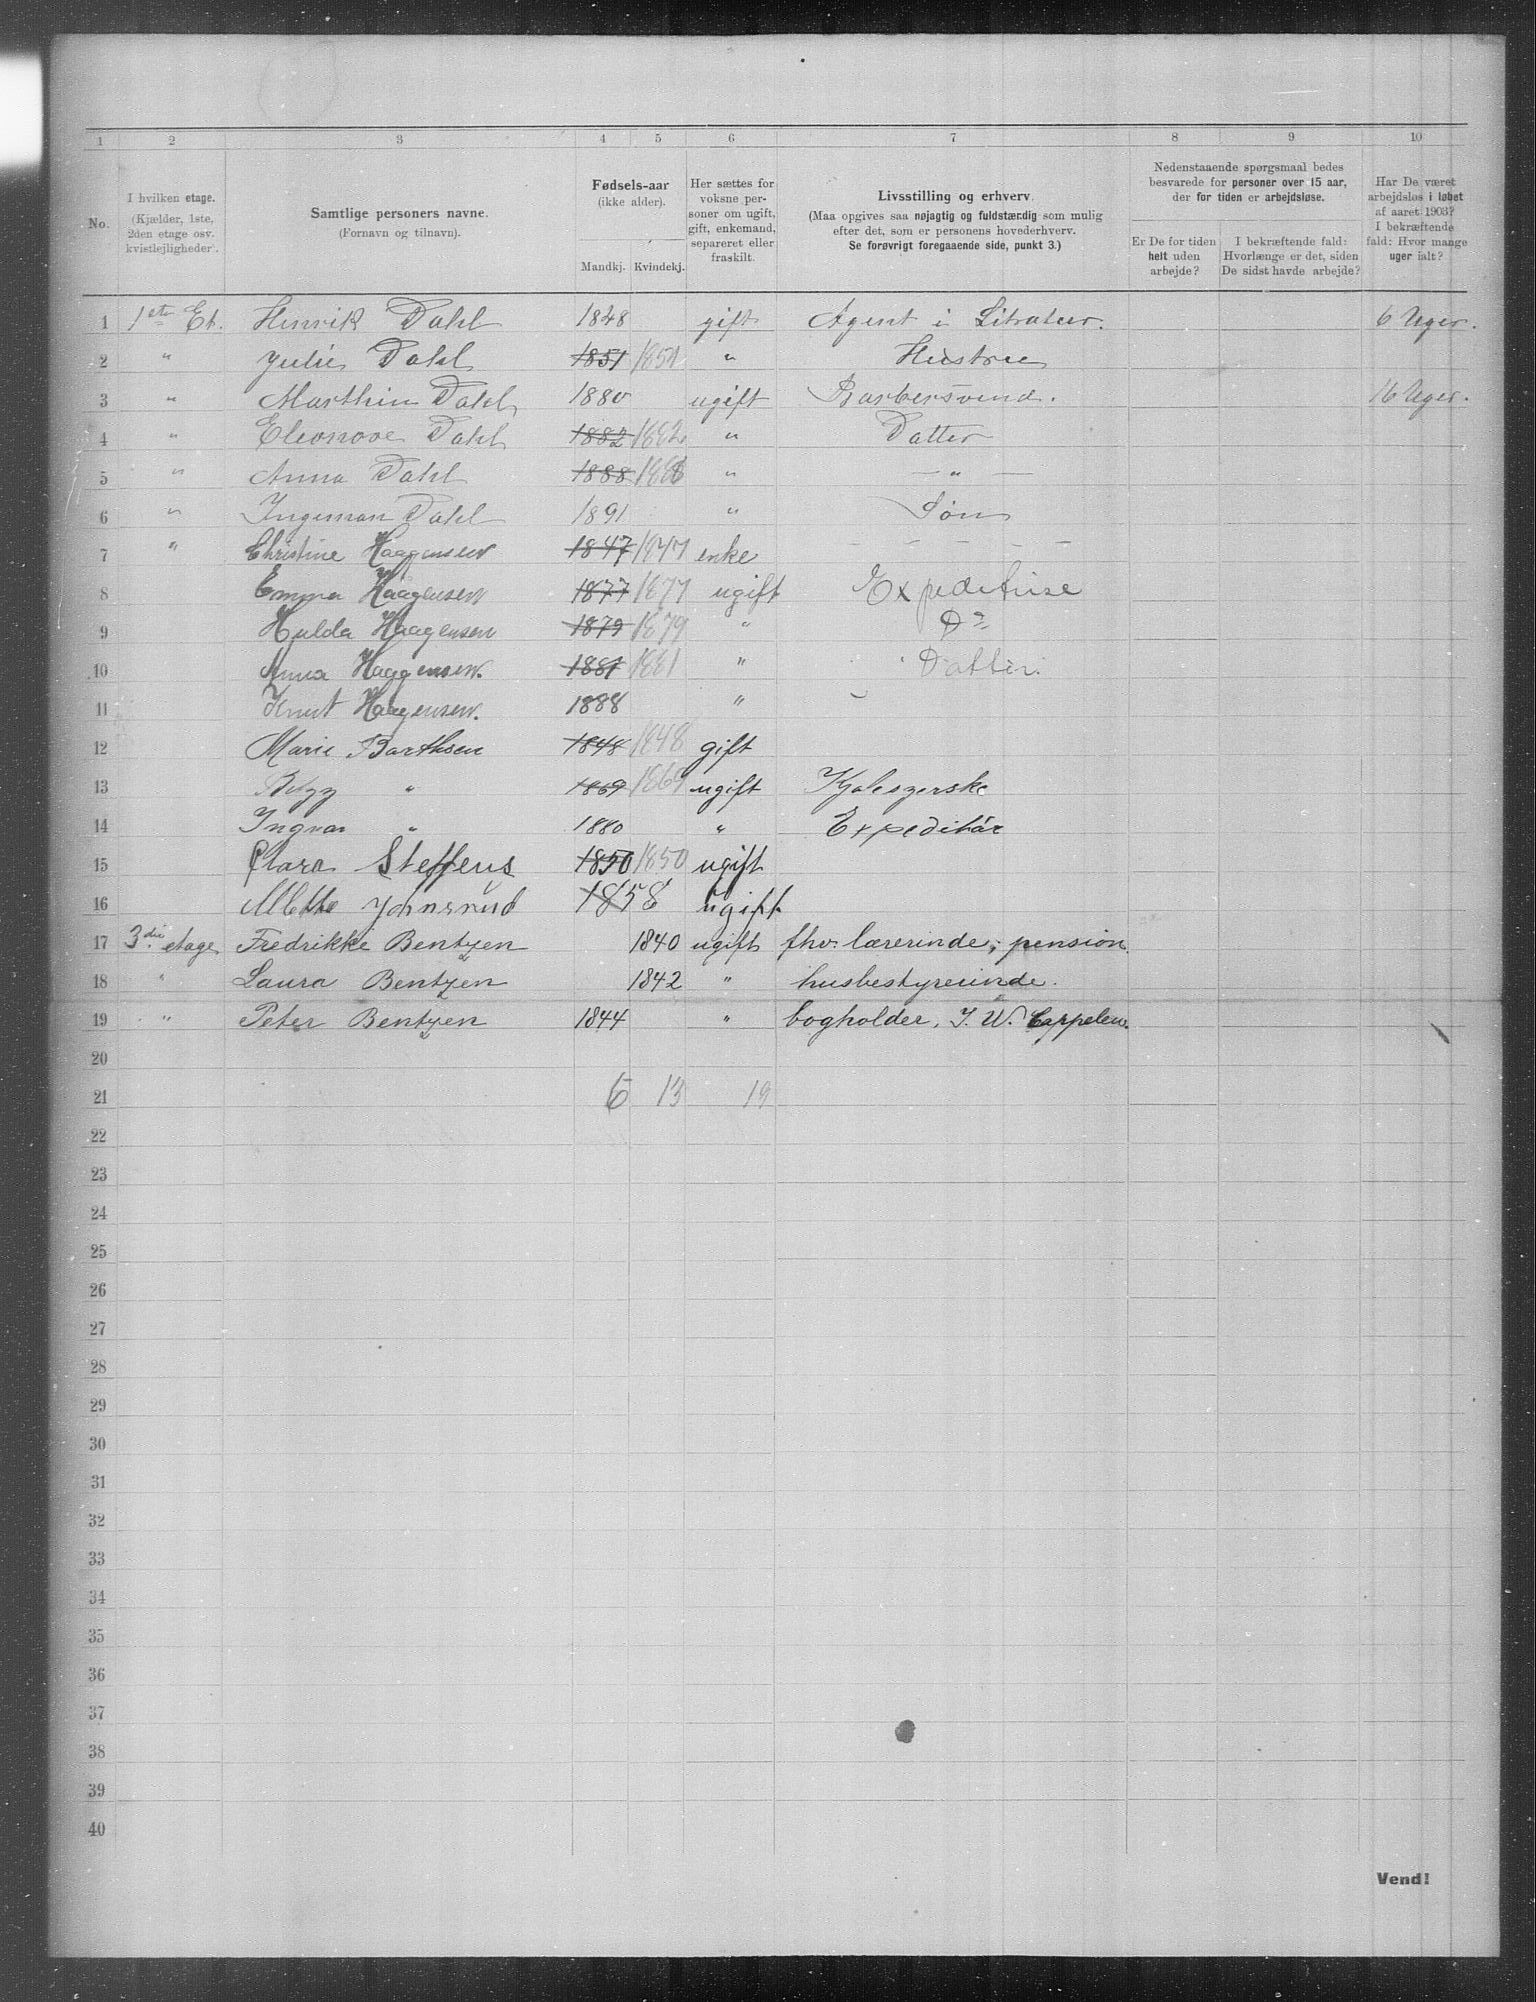 1 2 3 4 5 6 7 8 9 10
No.
I hvilken etage.
(Kjælder, 1ste,
2den etage osv.
kvistlejligheder).
Samtlige personers navne.
(Fornavn og tilnavn).
Fødsels-aar
(ikke alder).
Mandkj. Kvindekj.
Her sættes for
voksne per-
soner om ugift,
gift, enkemand,
separeret eller
fraskilt.
Livsstilling og erhverv.
(Maa opgives saa nøjagtig og fuldstændig som mulig
efter det, som er personens hovederhverv.
Se forøvrigt foregaaende side, punkt 3.)
Nedenstaaende spørgsmaal bedes
besvarede for personer over 15 aar,
der for tiden er arbejdsløse.
Er De for tiden
helt uden
arbejde?
I bekræftende fald:
Hvorlænge er det, siden
De sidst havde arbejde?
Har De været
arbejdsløs i løbet
af aaret 1903?
I bekræftende
fald: Hvor mange
uger ialt?
1 1ste Et. Henrik Dahl 1848 gift Agent i Litratur. 6 Uger.
2 " Julie Dahl 1851 1851 " Hustru
3 " Marthin Dahl 1880 ugift Barbersvend. 16 Uger.
4 " Eleonore Dahl 1882 1882 " Datter
5 " Anna Dahl 1888 1888 " — " —
6 " Ingeman Dahl 1891 " Søn
7 " Christine Haagensen 1847 1847 enke - - - - -
8 Emma Haagensen 1877 1877 ugift Expeditrise
9 Hulda Haagensen 1879 1879 " Do
10 Anna Haagensen. 1881 1881 " Datter.
11 Knut Haagensen. 1888 "
12 Marie Barthsen 1848 1848 gift
13 " 1869 1869 ugift Kjolesyerske
14 Ingvar " 1880 " Expeditør
15 Clara Steffens 1850 1850 ugift
16 Mette Johnsrud 1858 ugift
17 3die etage Fredrikke Bentzen 1840 ugift fhv. lærerinde, pension.
18 " Laura Bentzen 1842 " husbestyrerinde.
19 " Peter Bentzen 1844 " bogholder, J. W. Cappelen.
20
21 6 13 19
22
23
24
25
26
27
28
29
30
31
32
33
34
35
36
37
38
39
40
Vend!